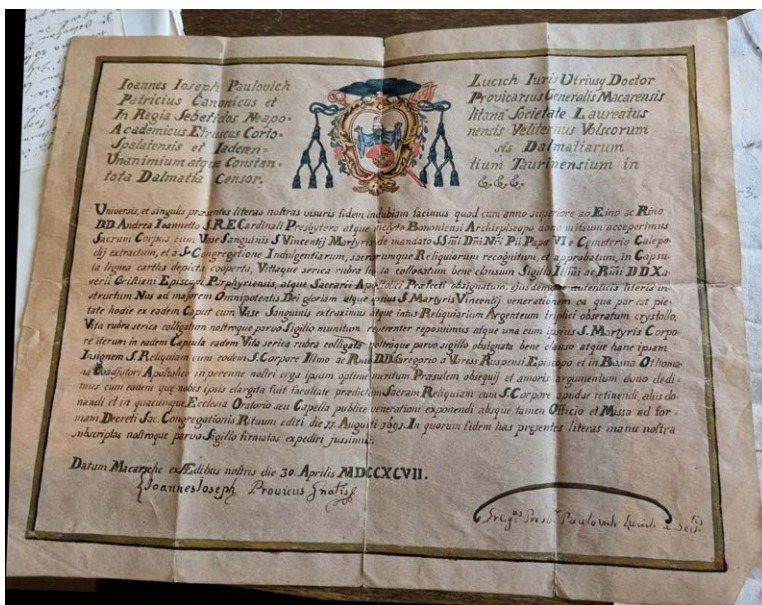 Ioannes Ioseph Paulovich Lucich Iuris Utriusq Doctor
Patricius Canonicus et Provicarius Generalis Macarensis
In Regia Sebetidos Neapo= litana Societate Laureatus
Academicus Etruscus Corto= nensis Veliternus Volscorum
Spalatensis et Iaderen= sis Dalmatiarum
Unanimium atque Constan= tium Taurinensium in
tota Dalmatia Censor. &.&.&.
Universis, et singulis præsentes literas nostras visuris fidem indubiam facimus quod cum anno superiore ab Emo ac Rmo
DD Andrea Ioannetto S.R.E Cardinali Presbytero atque inclyto Bononiensi Archiepiscopo dono missum acceperimus
Sacrum Corpus cum Vase Sanguinis S Vincentij Martyris de mandato SSmi Dni Nri Pii Papæ VI e Cœmeterio Calepo=
dij extractum, et a S. Congregatione Indulgentiarum, sacrarumque Reliquiarum recognitum, et approbatum, in Capsu=
la lignea cartha depicta cooperta, Vittaque serica rubra colligatum bene clausum Sigillo Illmi ac Rmi DD Xa=
verii Cristiani Episcopi Porphyriensis, atque Sacrarii Apostolici Præfecti obsignatum, ejusdemque autenticis literis in=
structum Nos ad majorem Omnipotentis Dei gloriam atque ipsius S Martyris Vincentij venerationem ea qua par est pie=
tate hodie ex eadem Caput cum Vase Sanguinis extraximus atque intus Reliquiarium Argenteum triplici obseratum crystallo,
Vita rubra serica colligatum nostroque parvo Sigillo munitum reverenter reposuimus atque una cum ipsius S. Martyris Corpo=
re iterum in eadem Capsula eadem Vita serica rubra colligata nostroque parvo sigillo obsignata bene clauso atque hanc ipsam
Insignem S. Reliquiam cum eodem S. Corpore Illmo ac Rmo DD. Gregorio a Varess Episcopo et in Bosna Othoma=
na Coadjutori Apostolico in perenne nostri erga ipsum optime meritum Præsulem obsequij et amoris argumentum dono dedi=
mus cum eadem quæ nobis ipsis elargita fuit facultate prædictam Sacram Reliquiam cum S. Corpore apud se retinendi, aliis do=
nandi et in quacunque Ecclesia Oratorio seu Capella publicæ venerationi exponendi absque tamen Officio et Missa ad for=
mam Decreti Sac. Congregationis Rituum editi die 11. Augusti 1691. In quorum fidem has præsentes literas manu nostra
subscriptas nostroque parvo Sigillo firmatas expediri jussimus.
Datum Macarschæ ex Ædibus nostris die 30 Aprilis MDCCXCVII.
Ioannes Ioseph Provicus Gnalis
Presb. Paulovich Lucich a Secis